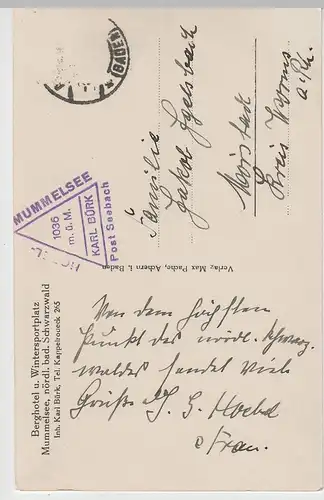 Berghotel u. Wintersportplatz
Mummelsee, nördl. bad. Schwarzwald
Inh. Karl Bürk, Tel. Kappelrodeck 265
MUMMELSEE
1036
m. ü. M.
HOTEL
KARL BÜRK
Post Seebach
(BADEN)
Von dem höchsten
Punkt des nördl. Schwarz-
waldes sendet viele
Grüße
Frau.
Verlag Max Pache, Achern i. Baden
Familie
Jakob
Mörstadt
Kreis Worms
a/Rh.